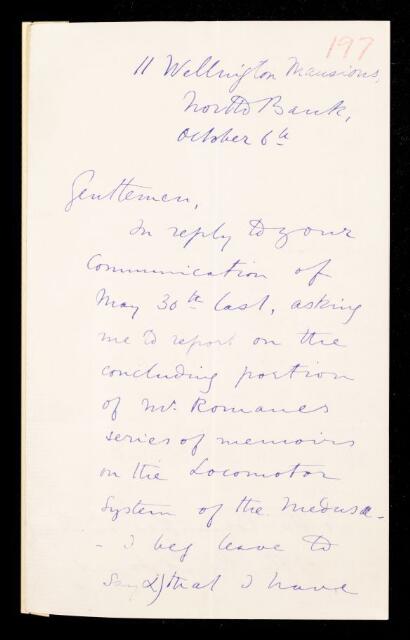 197
11 Wellington Mansions,
North Bank,
October 6th
Gentlemen,
In reply to your
communication of
May 30th last, asking
me to report on the
concluding portion
of Mr. Romanes
series of memoirs
on the Locomotor
System of the Medusae -
- I beg leave to
say that I have